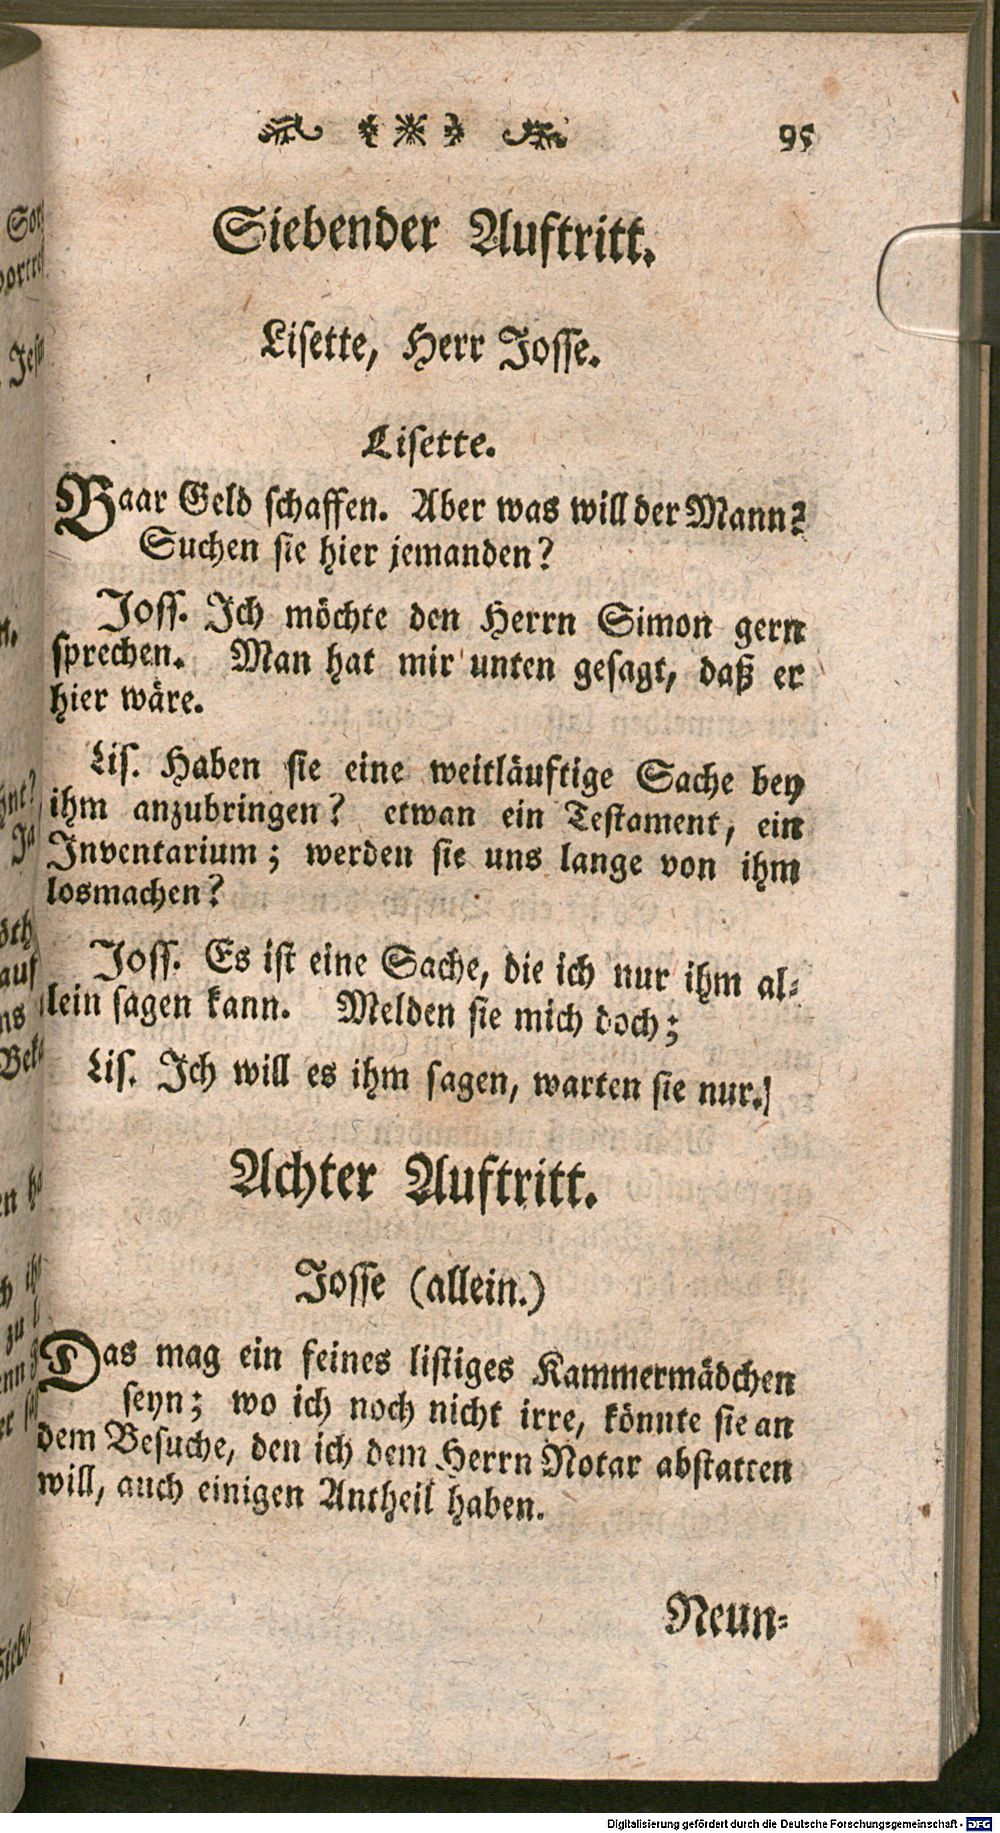 95
Siebender Auftritt.
Lisette, Herr Josse.
Lisette.
Baar Geld schaffen. Aber was will der Mann?
Suchen sie hier jemanden?
Joss. Ich möchte den Herrn Simon gern
sprechen. Man hat mir unten gesagt, daß er
hier wäre.
Lis. Haben sie eine weitläuftige Sache bey
ihm anzubringen? etwan ein Testament, ein
Inventarium; werden sie uns lange von ihm
losmachen?
Joss. Es ist eine Sache, die ich nur ihm al-
lein sagen kann. Melden sie mich doch;
Lis. Ich will es ihm sagen, warten sie nur.
Achter Auftritt.
Josse (allein.)
Das mag ein feines listiges Kammermädchen
seyn; wo ich noch nicht irre, könnte sie an
dem Besuche, den ich dem Herrn Notar abstatten
will, auch einigen Antheil haben.
Neun-
Digitalisierung gefördert durch die Deutsche Forschungsgemeinschaft - DFG